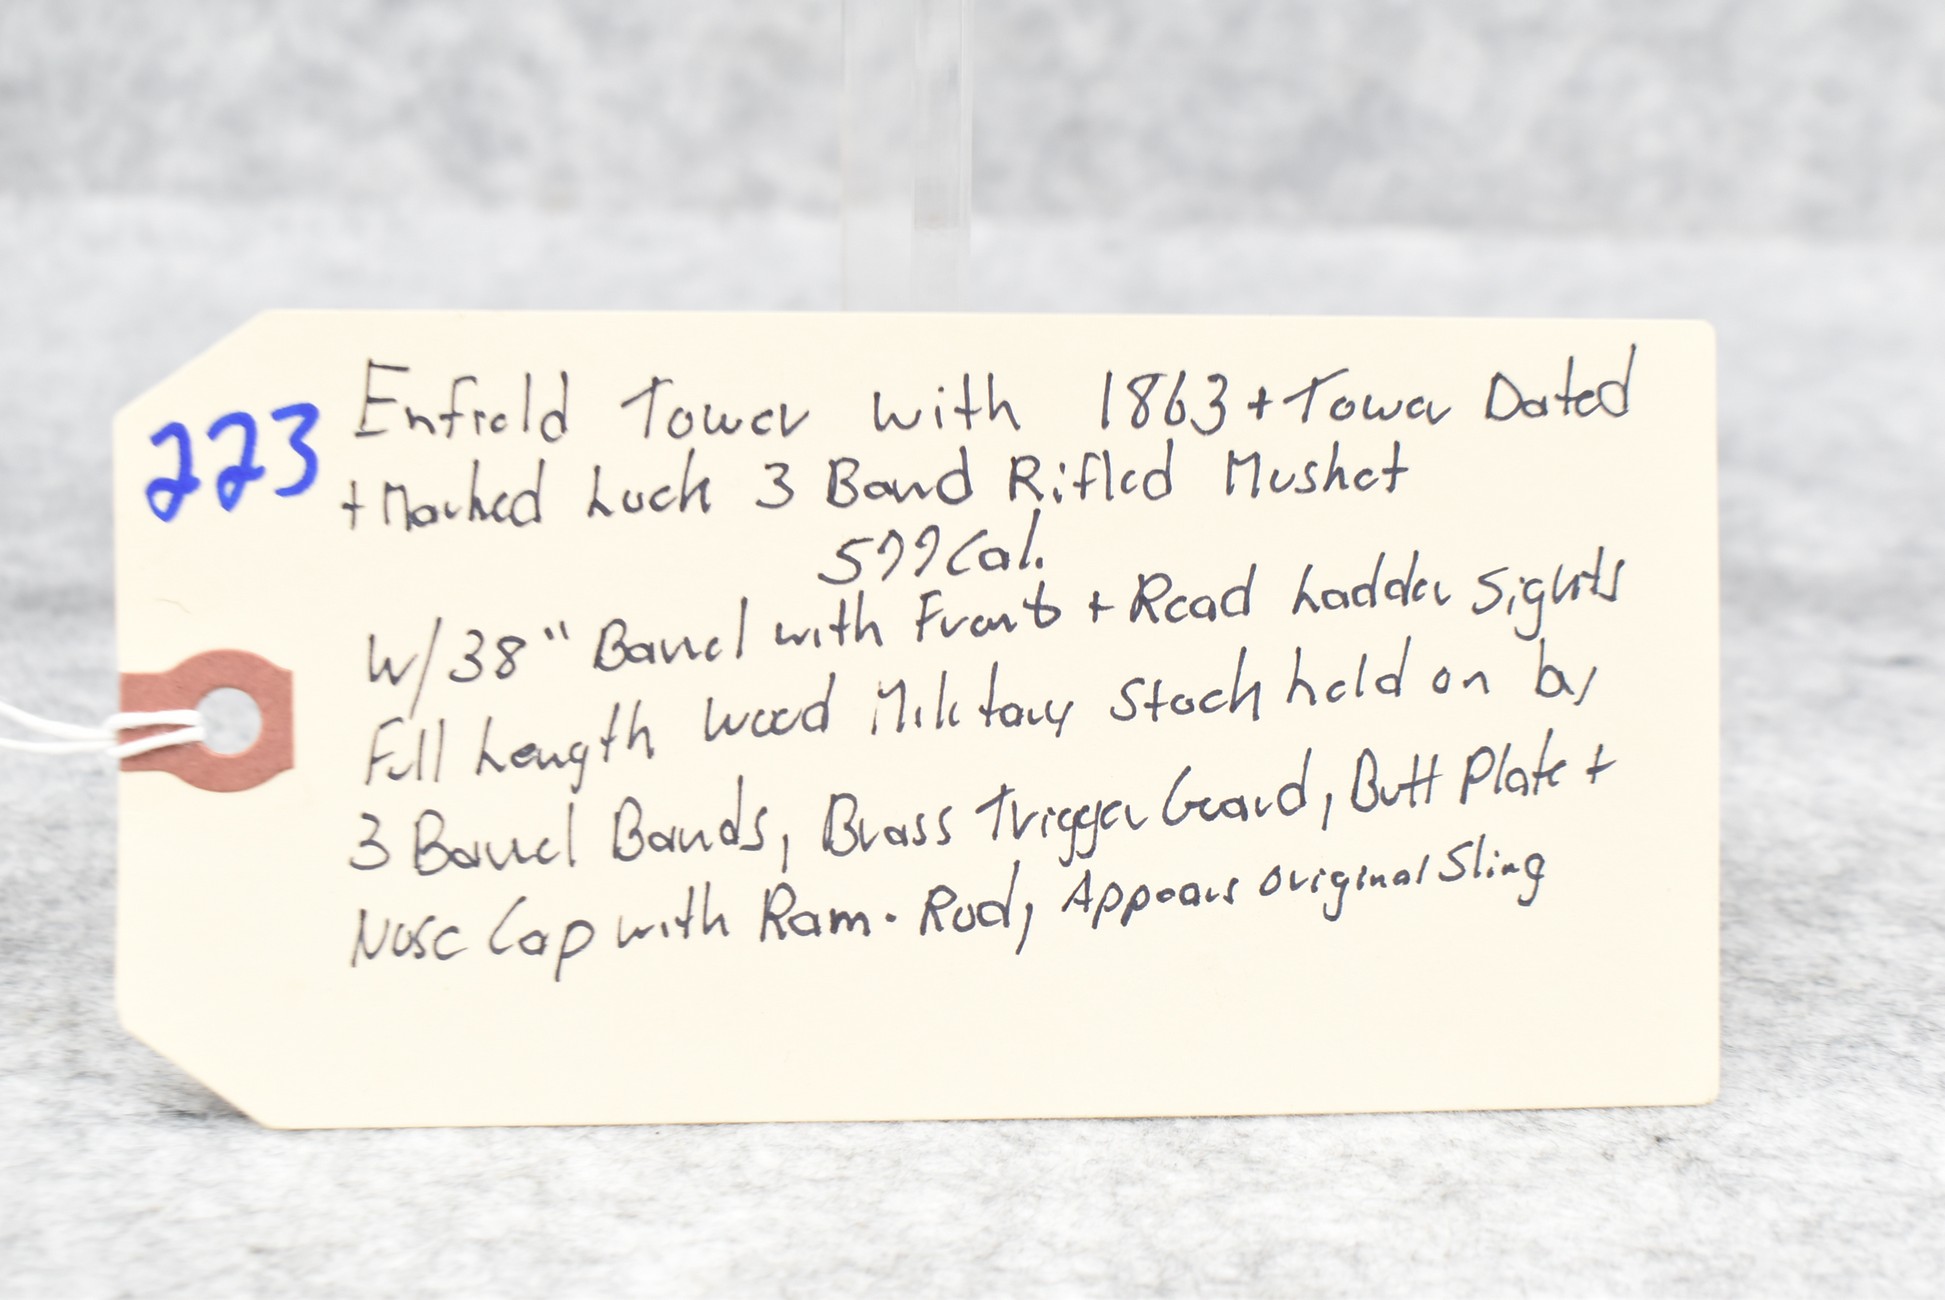 223
Enfield Tower with 1863 + Tower Dated
+ Marked Lock 3 Band Rifled Musket
577 Cal.
W/38" Barrel with Front + Read Ladder Sights
Full Length Wood Military Stock held on by
3 Barrel Bands, Brass Trigger Guard, Butt Plate +
Nose Cap with Ram-Rod, Appears Original Sling